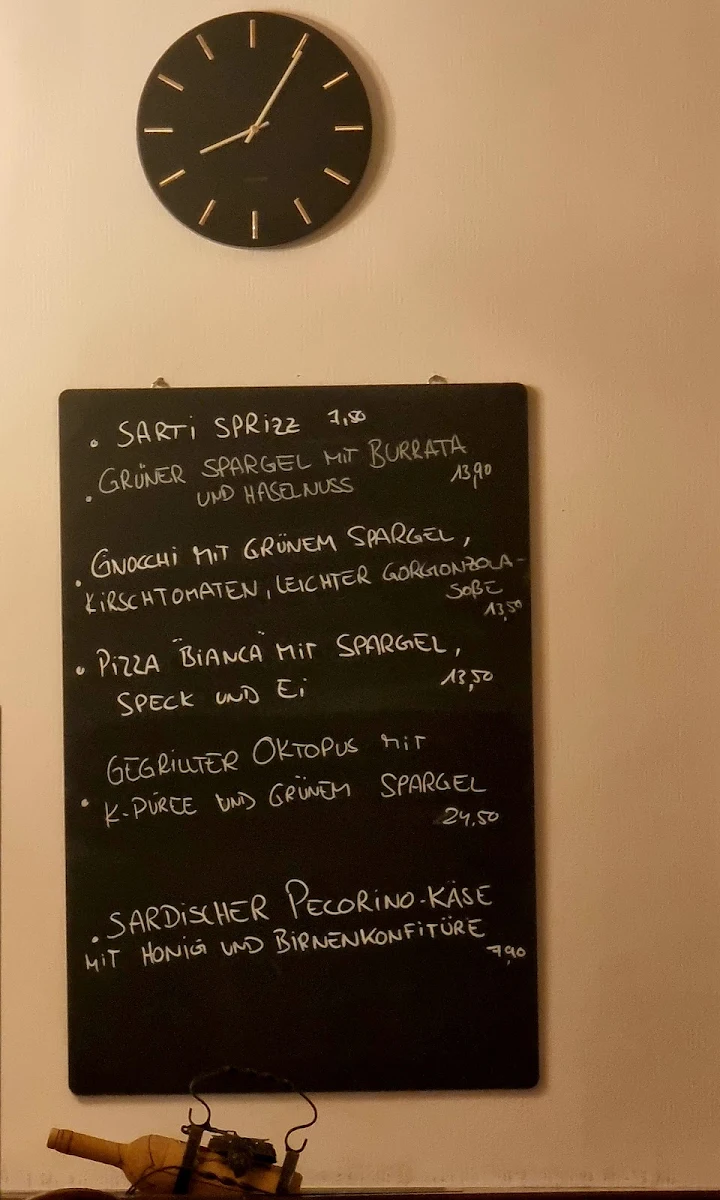 • SARTI SPRIZZ 7,50
• GRÜNER SPARGEL MIT BURRATA
UND HASELNUSS 13,90
• GNOCCHI MIT GRÜNEM SPARGEL,
KIRSCHTOMATEN, LEICHTER GORGIONZOLA-
SOßE
13,50
• PIZZA "BIANCA" MIT SPARGEL,
SPECK UND Ei 13,50
GEGRILLTER OKTOPUS MIT
• K-PÜREE UND GRÜNEM SPARGEL
24,50
• SARDISCHER PECORINO-KÄSE
MIT HONIG UND BIRNENKONFITÜRE
7,90